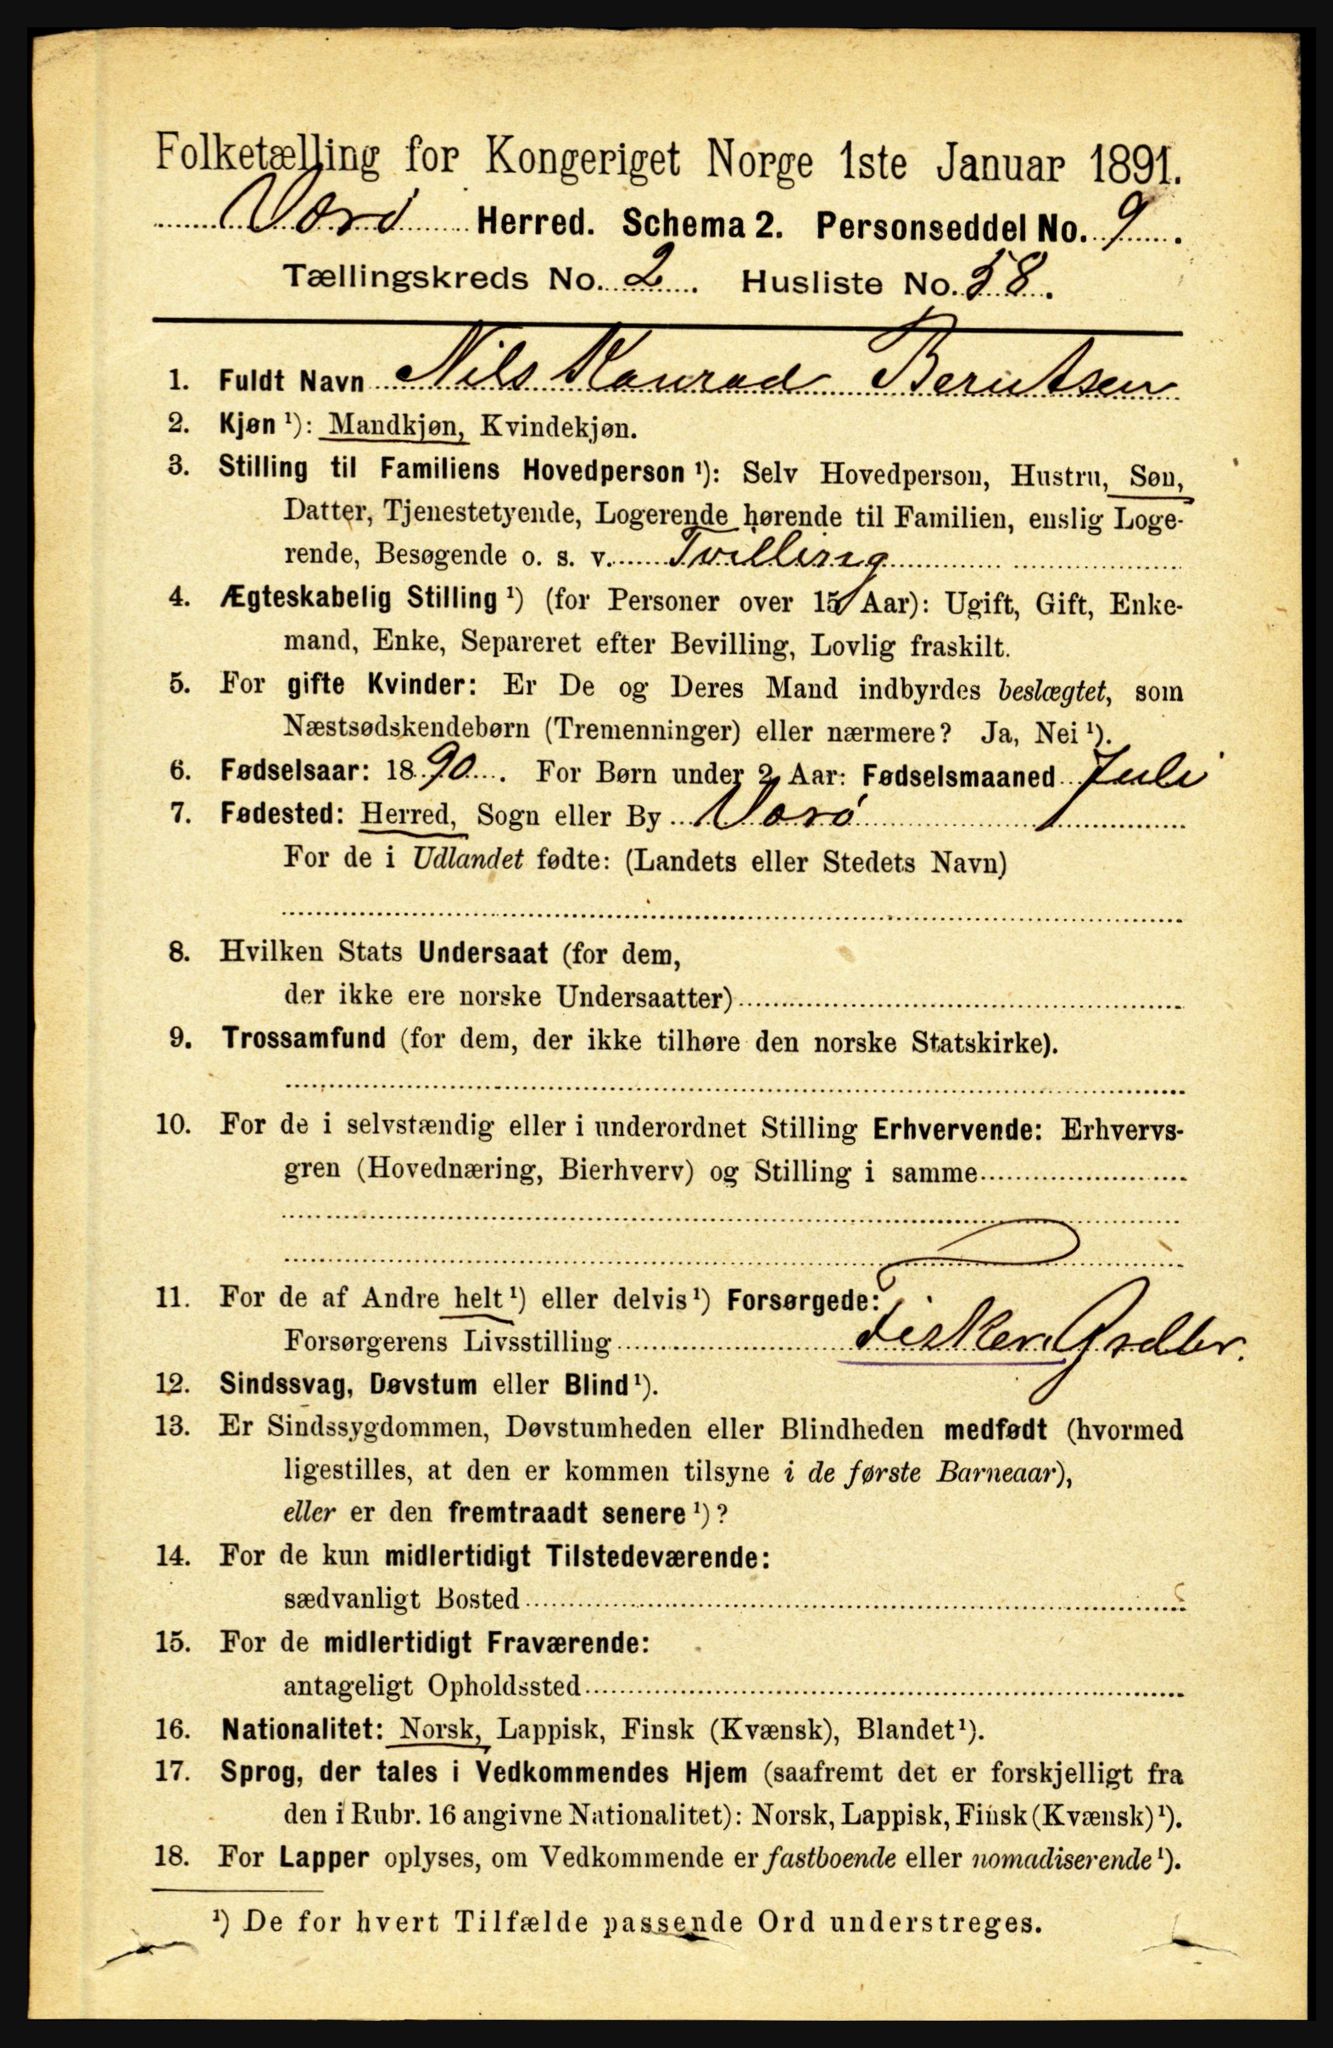 Folketælling for Kongeriget Norge 1ste Januar 1891.
Værø Herred. Schema 2. Personseddel No. 9.
Tællingskreds No. 2. Husliste No. 58.
1. Fuldt Navn Nils Konrad Berntsen
2. Kjøn ¹): Mandkjøn, Kvindekjøn.
3. Stilling til Familiens Hovedperson ¹): Selv Hovedperson, Hustru, Søn,
Datter, Tjenestetyende, Logerende hørende til Familien, enslig Loge-
rende, Besøgende o. s. v. Tvilling
4. Ægteskabelig Stilling ¹) (for Personer over 15 Aar): Ugift, Gift, Enke-
mand, Enke, Separeret efter Bevilling, Lovlig fraskilt.
5. For gifte Kvinder: Er De og Deres Mand indbyrdes beslægtet, som
Næstsødskendebørn (Tremenninger) eller nærmere? Ja, Nei ¹).
6. Fødselsaar: 1890. For Børn under 2 Aar: Fødselsmaaned Juli
7. Fødested: Herred, Sogn eller By Værø
For de i Udlandet fødte: (Landets eller Stedets Navn)
8. Hvilken Stats Undersaat (for dem,
der ikke ere norske Undersaatter)
9. Trossamfund (for dem, der ikke tilhøre den norske Statskirke).
10. For de i selvstændig eller i underordnet Stilling Erhvervende: Erhvervs-
gren (Hovednæring, Bierhverv) og Stilling i samme
11. For de af Andre helt ¹) eller delvis ¹) Forsørgede:
Forsørgerens Livsstilling Fisker, Grdbr.
12. Sindssvag, Døvstum eller Blind ¹).
13. Er Sindssygdommen, Døvstumheden eller Blindheden medfødt (hvormed
ligestilles, at den er kommen tilsyne i de første Barneaar),
eller er den fremtraadt senere ¹)?
14. For de kun midlertidigt Tilstedeværende:
sædvanligt Bosted
15. For de midlertidigt Fraværende:
antageligt Opholdssted
16. Nationalitet: Norsk, Lappisk, Finsk (Kvænsk), Blandet ¹).
17. Sprog, der tales i Vedkommendes Hjem (saafremt det er forskjelligt fra
den i Rubr. 16 angivne Nationalitet): Norsk, Lappisk, Finsk (Kvænsk) ¹).
18. For Lapper oplyses, om Vedkommende er fastboende eller nomadiserende ¹).
¹) De for hvert Tilfælde passende Ord understreges.